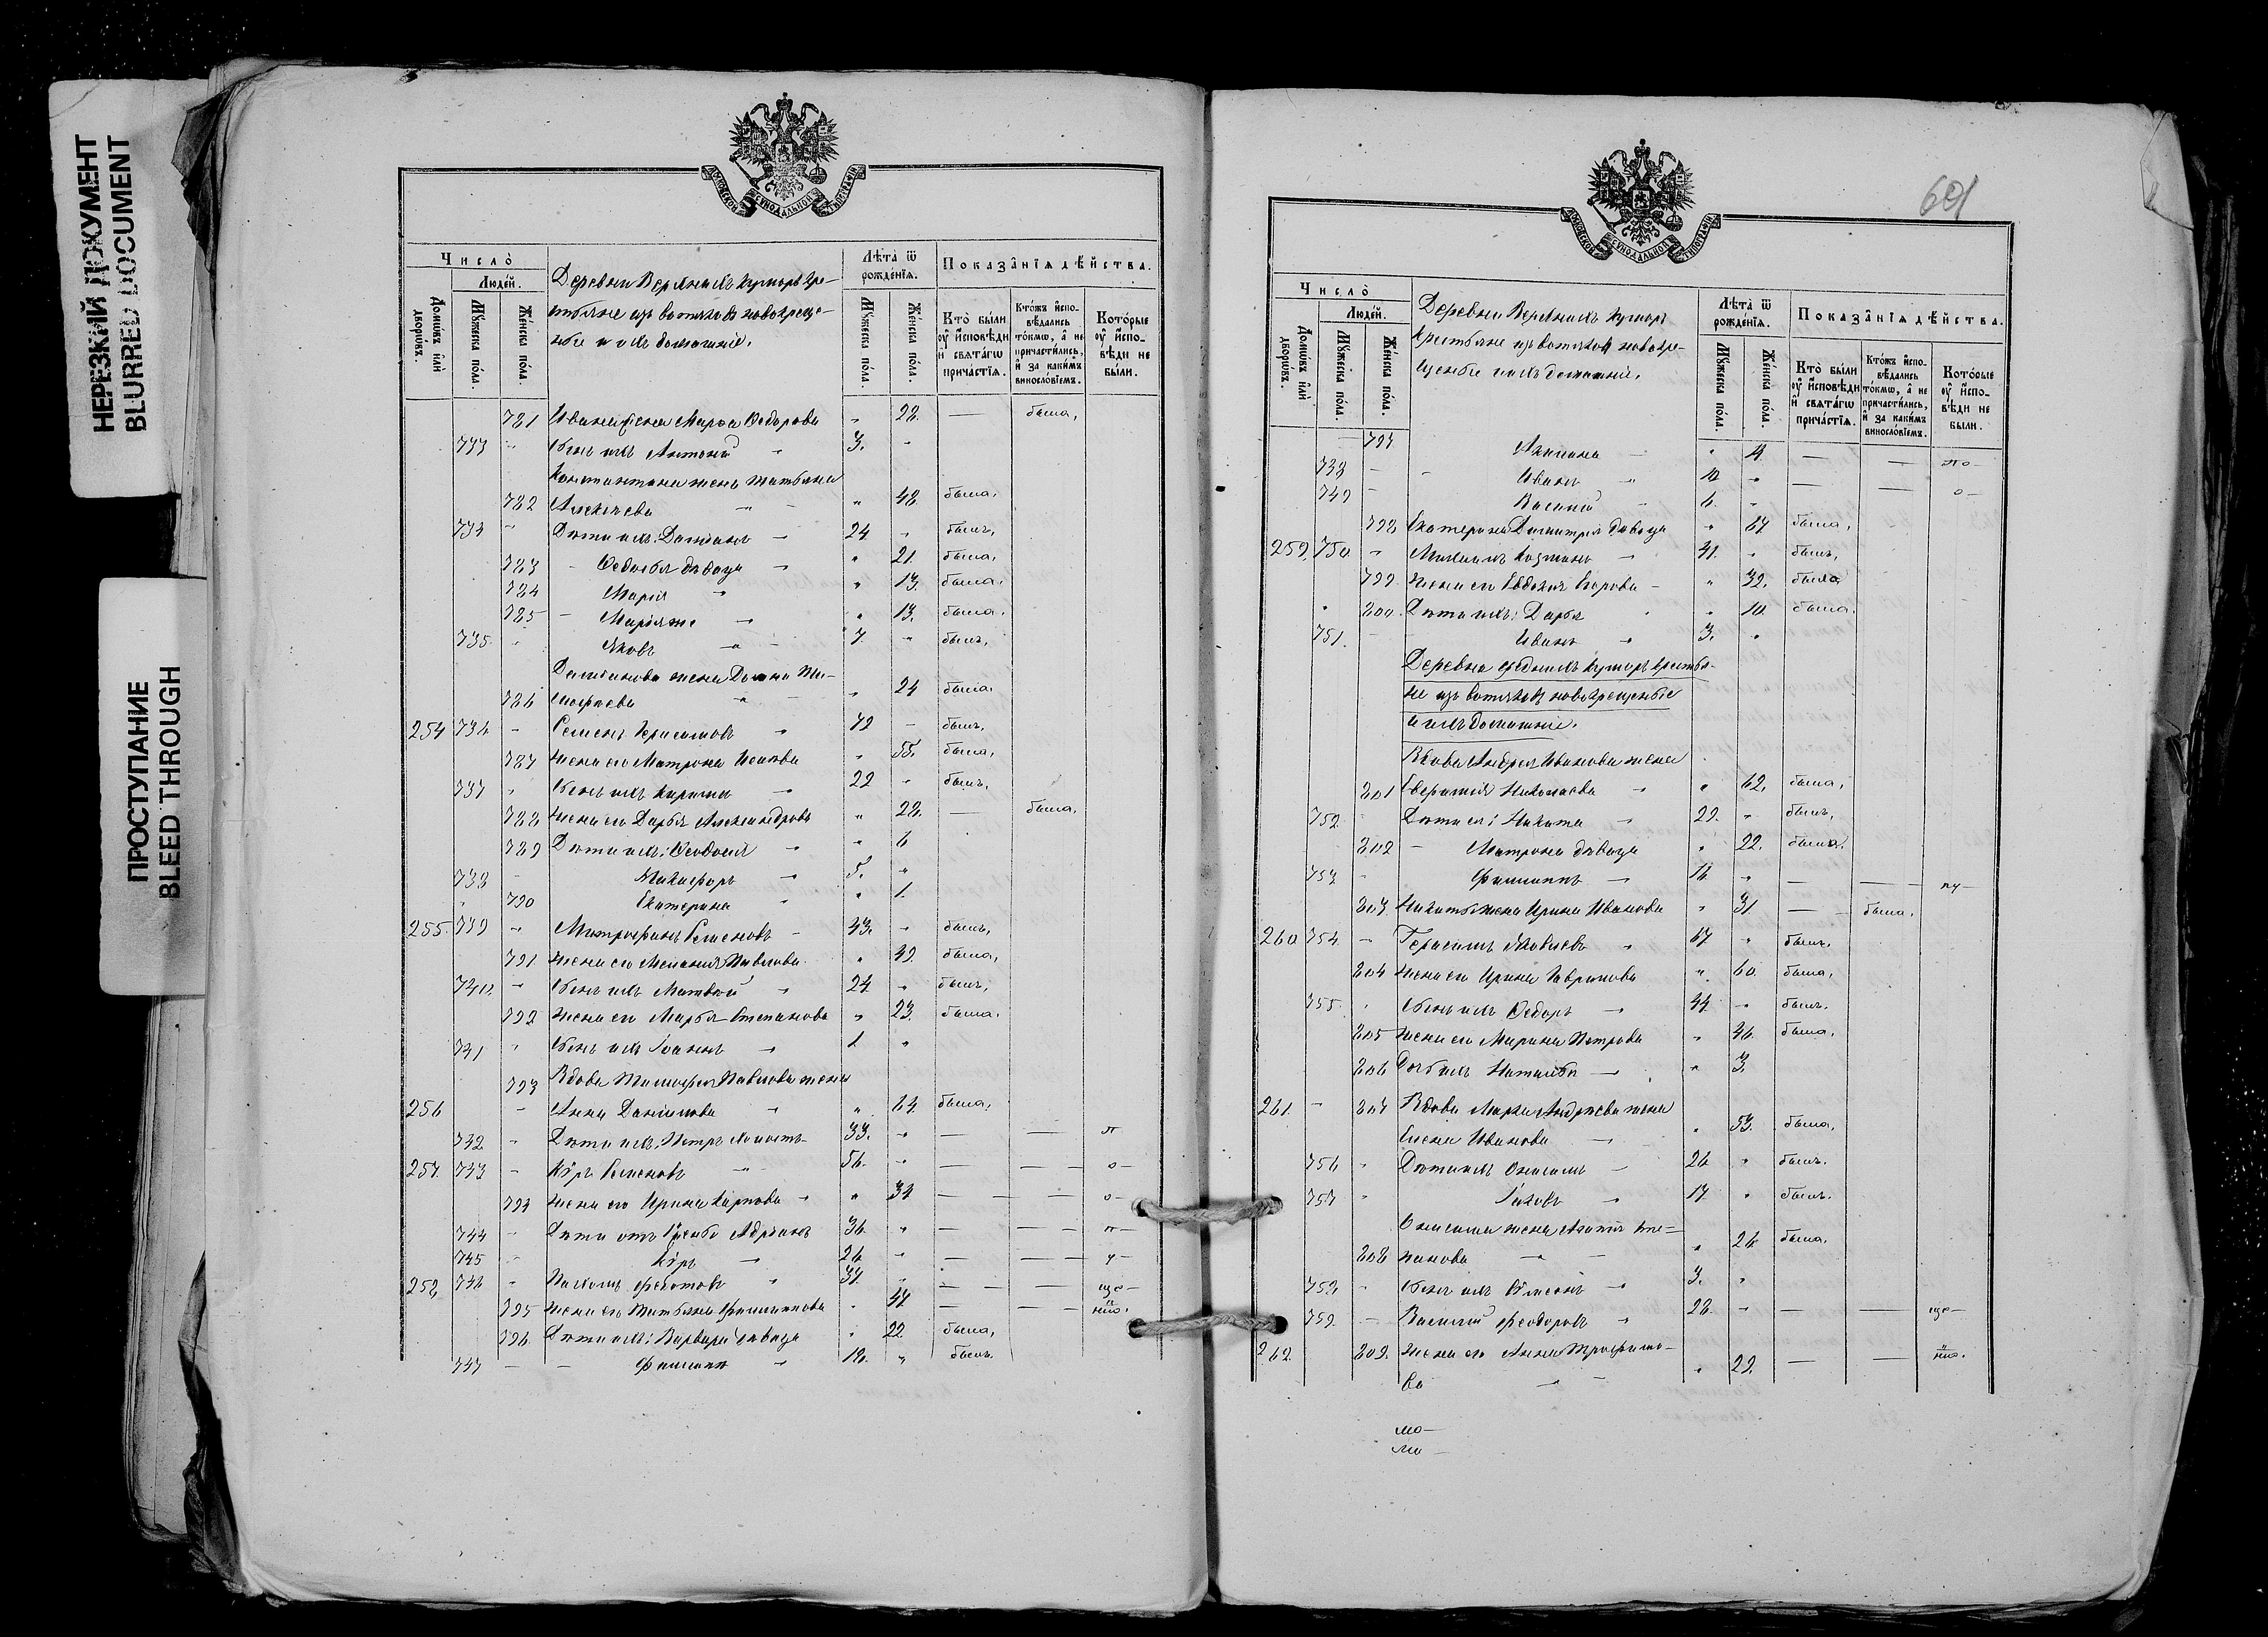 НЕРЕЗКИЙ ДОКУМЕНТ
BLURRED DOCUMENT
ПРОСТУПАНИЕ
BLEED THROUGH
МОСКОВСКОЙ СѴНОДАЛЬНОЙ ТИПОГРАФІИ
Число̀
Люде́й.
Домѡ́въ и҆лѝ дворѡ́въ.
Мꙋ́жеска по́ла.
Же́нска по́ла.
Деревни Верхнихъ Кумор кре-
стьяне изъ вотяковъ новокреще-
ные и ихъ домашніе.
Лѣ́та ѿ рожде́нїѧ.
Мꙋ́жеска по́ла.
Же́нска по́ла.
Показа̑нїѧ дѣ́йства.
Кто̀ бы́ли ᲂу҆ и҆́сповѣди и҆ свѧта́гѡ прича́стїѧ.
Кто́жъ и҆спо-вѣ́дались то́кмѡ, а҆ не причасти́лись, и҆ за каки́мъ винослѡ́вїемъ.
Кото́рые ᲂу҆ и҆́спо-вѣди не бы́ли.
781 Ивана жена Марѳа Ѳедорова „ 28. — была,
733 „ Сынъ ихъ Антоній „ 3. „
Константина жена Татьяна
782 Алексѣева „ „ 48. была,
734 „ Дѣти ихъ: Даміанъ „ 24 „ былъ,
783 Ѳедосья дѣвица „ „ 21. была,
784 Марія „ „ 13. была,
785 Маріяна „ „ 13. была,
735. „ Яковъ „ 7. „ былъ,
Даміанова жена Домна Ти-
786 моѳеева „ „ 24 была,
254 736 „ Семенъ Герасимовъ „ 72 — былъ,
787 жена его Матрона Исакова „ 55. была,
737 „ Сынъ ихъ Кирилъ „ 22 „ былъ,
788 жена его Дарья Александрова „ 28. — была,
789 Дѣти ихъ: Ѳеодосія „ „ 6
738 Никифоръ „ 5. „
790 Екатерина „ „ 1.
255. 739 „ Митрофанъ Семеновъ „ 43. „ былъ,
791. жена его Меланія Павлова „ 42. была,
740. „ Сынъ ихъ Матвей „ 24 „ былъ,
792 жена его Марѳа Степанова „ 23. была.
741 „ Сынъ ихъ Іоаннъ „ 1 „
793 Вдова Тимоѳея Павлова жена
256 „ Анна Данилова „ „ 64. была,
742 „ Дѣти ихъ: Петръ холостъ 33. „ — — п
257. 743 „ Кѵръ Семеновъ „ 56. „ — — о—
794 жена его Ирина Карпова „ „ 34 — — о—
744 „ Адріанъ 36. „ — — п—
745 „ Кѵръ „ 26. „ — — у—
258 746 „ Пахомъ Ѳедотовъ „ 37. „ — — ще—
795 жена его Татьяна Филиппова „ 47 — — нію.
796. Дѣти ихъ: Варвара дѣвица „ 22. была,
747 — — Филиппъ „ 18. „ былъ.
МОСКОВСКОЙ СѴНОДАЛЬНОЙ ТИПОГРАФІИ
Число̀
Люде́й.
Домѡ́въ и҆лѝ дворѡ́въ.
Мꙋ́жеска по́ла.
Же́нска по́ла.
Деревни Верхнихъ Кумор
Крестьяне изъ вотяковъ новокре-
щеные и ихъ домашніе.
Лѣ́та ѿ рожде́нїѧ.
Мꙋ́жеска по́ла.
Же́нска по́ла.
Показа̑нїѧ дѣ́йства.
Кто̀ бы́ли ᲂу҆ и҆́сповѣди и҆ свѧта́гѡ прича́стїѧ.
Кто́жъ и҆спо-вѣ́дались то́кмѡ, а҆ не причасти́лись, и҆ за каки́мъ винослѡ́вїемъ.
Кото́рые ᲂу҆ и҆́спо-вѣди не бы́ли.
797 Акилина „ 4. — — по—
748 — Иванъ „ 10. „ — — о—
749 — Василій „ 6. „
798 Екатерина Димитріева дѣвица „ 67. была,
259. 750 „ Михаилъ Козминъ „ 41. „ былъ,
799. жена его Евдокія Егорова „ 32. была
„ 800. Дѣти ихъ: Дарья „ 10. была.
751. — Иванъ „ 3. „
Деревни среднихъ Кумор крестья-
не изъ вотяковъ новокрещеные
и ихъ домашніе.
Вдова Андрея Иванова жена
801 Никонаева „ „ 62. была,
752 Дѣти ея: Никита „ 29. „ былъ,
802 — Матрона дѣвица „ 22. была.
753 „ Филиппъ „ 16. „ — — пу—
803. Никиты жена Ирина Иванова „ 31. — была.
260 754. „ Герасимъ Яковлевъ „ 67 „ былъ.
804 жена его Ирина Гаврилова „ 60. была,
755. „ Сынъ ихъ Ѳедоръ „ 44. „ былъ.
805 жена его Марина Петрова „ 46. была,
806 Дочь ихъ Наталья — „ 3.
261. „ 807 Вдова Марка Андреева жена
Елена Иванова „ 53. была,
756 „ Дѣти ихъ Онисимъ „ 26 „ былъ.
757 „ Іаковъ „ 17. „ былъ.
Онисима жена Агапія Сте-
808 панова „ „ 26. была.
758. „ Сынъ ихъ Сѵмеонъ „ 3. „
759. — Василій Ѳеодоровъ „ 28. „ — — ще—
262. 809. жена его Анна Трофимо-
ва „ „ 29. — — нію.